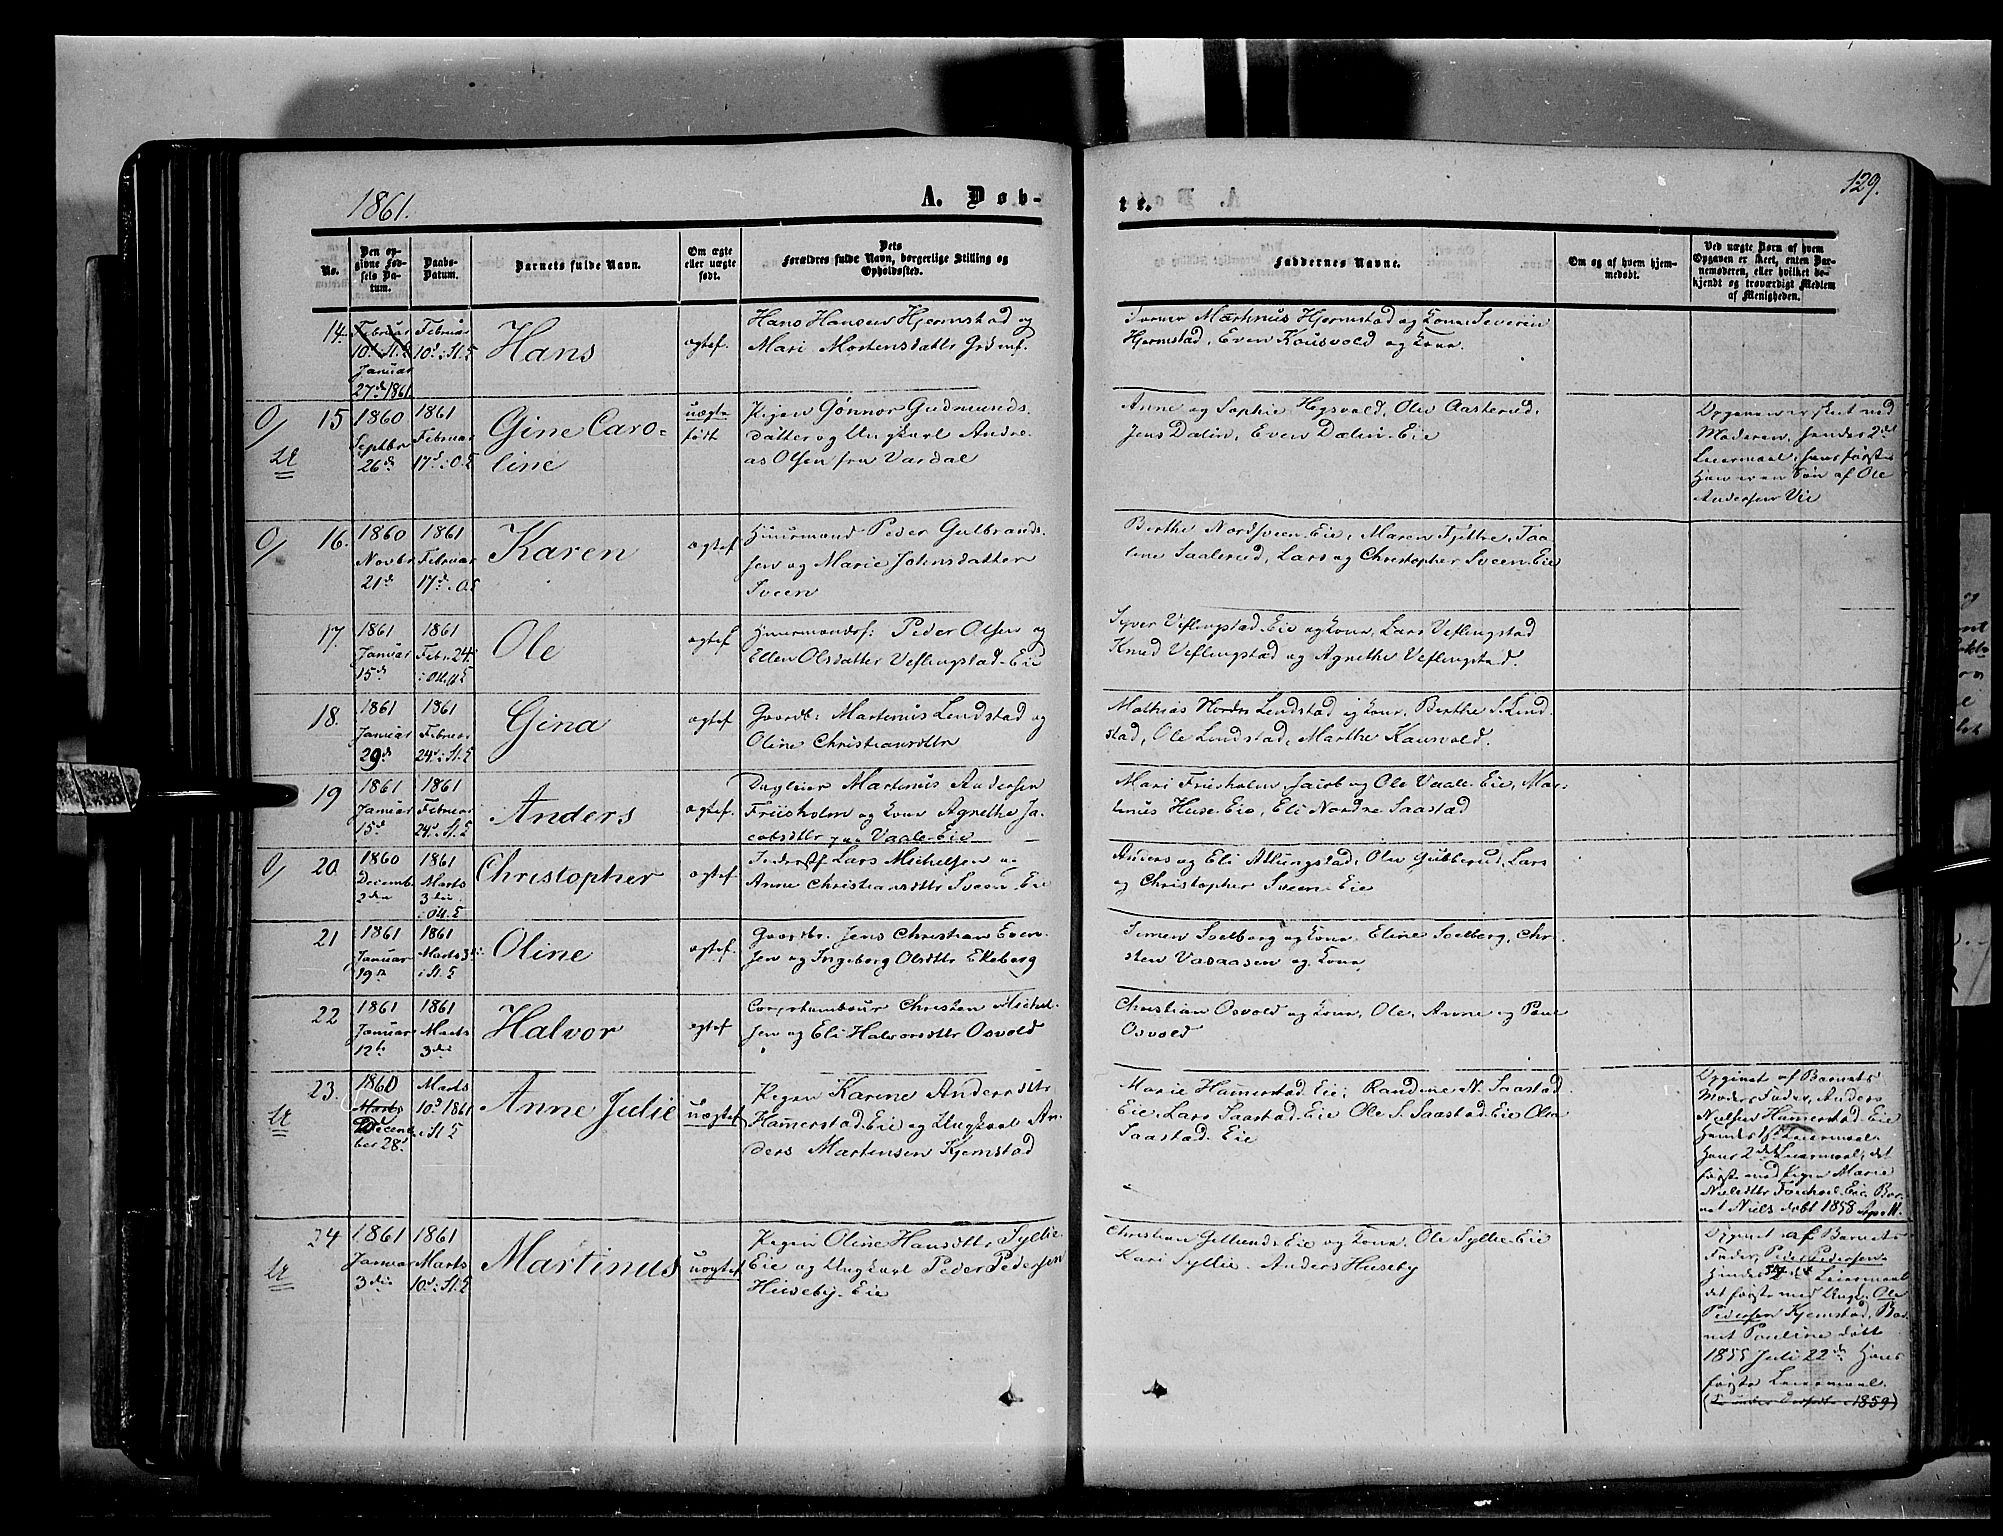 1861.
A. Døb-
te.
129.
No.
Den op-
givne Fød-
sels Da-
tum.
Daabs-
Datum.
Barnets fulde Navn.
Om ægte
eller uægte
født.
Dets
Forældres fulde Navn, borgerlige Stilling og
Opholdssted.
Faddernes Navne.
Om og af hvem hjem-
medøbt.
Ved uægte Børn af hvem
Opgaven er skeet, enten Bar-
nemoderen, eller hvilket be-
kjendt og troværdigt Medlem
af Menigheden.
14.
Februar
10d
Januar
27de 1861
Februar
10d i St. E
Hans
ægtef.
Hans Hansen Hjermstad og
Mari Mortensdatter
Martinus Hjermstad og Kone, Severin
Hjermstad, Even Kousvold og Kone.
15
1860
Septbr
26de
1861
Februar
17d i O.E
Gine Caro-
line
uægte
født
Pigen Gønnor Gudmunds-
datter og Ungkarl Andre-
as Olsen fra Vardal
Anne og Sophie Hegsvold, Ole Aasterud,
Jens Dælin, Even Dælin-Eie
Opgaven er skeet ved
Moderen, hendes 2det
Leiermaal, hans første
Hun er en Søn af Ole
Andersen Vie
16.
1860
Novbr
21d
1861
Februar
17d i O.E
Karen
ægtef.
Huusmand Peder Gulbrand-
sen og Marie Johnsdatter
Sveen
Berthe Nordsveen-Eie, Maren Fjeltre,
Saalerud, Lars og Christopher Sveen-Eie
17.
1861
Januar
15d
1861
Febr. 24.
Ole
ægtef.
Huusmandsf: Peder Olsen og
Ellen Olsdatter Veflingstad-Eie
Syver Veflingstad-Eie og Kone, Lars Veflingstad
Knud Veflingstad og Agnethe Veflingstad.
18.
1861
Januar
29de
1861
Februar
24d i St. E
Gina
ægtef.
Gaardb: Martinus Lundstad og
Oline Christiansdtr
Mathias Nordre Lundstad og Kone, Berthe S. Lund-
stad, Ole Lundstad, Marthe Kausvold.
19
1861
Januar
15d
1861
Februar
24d i St. E
Anders
ægtef.
Dagleier Martinus Andersen
Friisholm og Kone Agnethe Ja-
cobsdtr paa Vaale-Eie
Mari Friisholm, Jacob og Ole Vaale-Eie, Mar-
tinus Huse-Eie, Eli Nordre Saastad
20.
1860
Decemb.
2den
1861
Marts
3die
Christopher
ægtef.
Inderstf Lars Michelsen og
Anne Christiansdtr Sveen-Eie
Anders og Eli Atlungstad, Ole Gubberud, Lars
og Christopher Sveen-Eie
21
1861
Januar
19de
1861
Marts 3die
i St. E
Oline
ægtef.
Gaardbr. Jens Christian Even-
sen og Ingeborg Olsdtr Ekeberg
Simen Solberg og Kone, Eline Solberg, Chr-
sten Vasaasen og Kone,
22
1861
Januar
12te
1861
Marts
3die
Halvor
ægtef.
Corpstambour Christen Michel-
sen og Eli Halvorsdtr Osvold
Christian Osvold og Kone, Ole, Anne og Paul
Osvold
23.
1860
Marts
Decem-
ber 28.
Marts
10d 1861
i St. E
Anne Julie
uægtef.
Pigen Karine Andersdtr
Hamerstad-Eie og Ungkarl An-
ders Martinsen Kjemstad
Marie Hamerstad-Eie, Randine N. Saastad
Eie, Lars Saastad-Eie Ole S. Saastad-Eie Olea
Saastad-Eie
Opgivet af Barnets
Moders Fader, Anders
Nielsen Hamerstad-Eie
Hendes 1ste Leiermaal
Hans 2det Leiermaal, det
første med Pigen Marie
Nielsdtr Eie Bar-
net Niels døbt 1858
24
1861
Januar
3die
1861
Marts
10d i St. E
Martinus
uægtef.
Pigen Oline Hansdtr Syllie
Eie og Ungkarl Peder Pedersen
Huseby-Eie
Christian Gillund-Eie og Kone, Ole Syllie-Eie
Kari Syllie, Anders Huseby
Opgivet af Barnets
Fader, Peder Pedersen
Hendes Leiermaal
det første med Ungk. Ole
Pedersen Kjemstad, Bar-
net Pauline døbt
1855 Juli 22de. Hans
første Leiermaal.
1859)